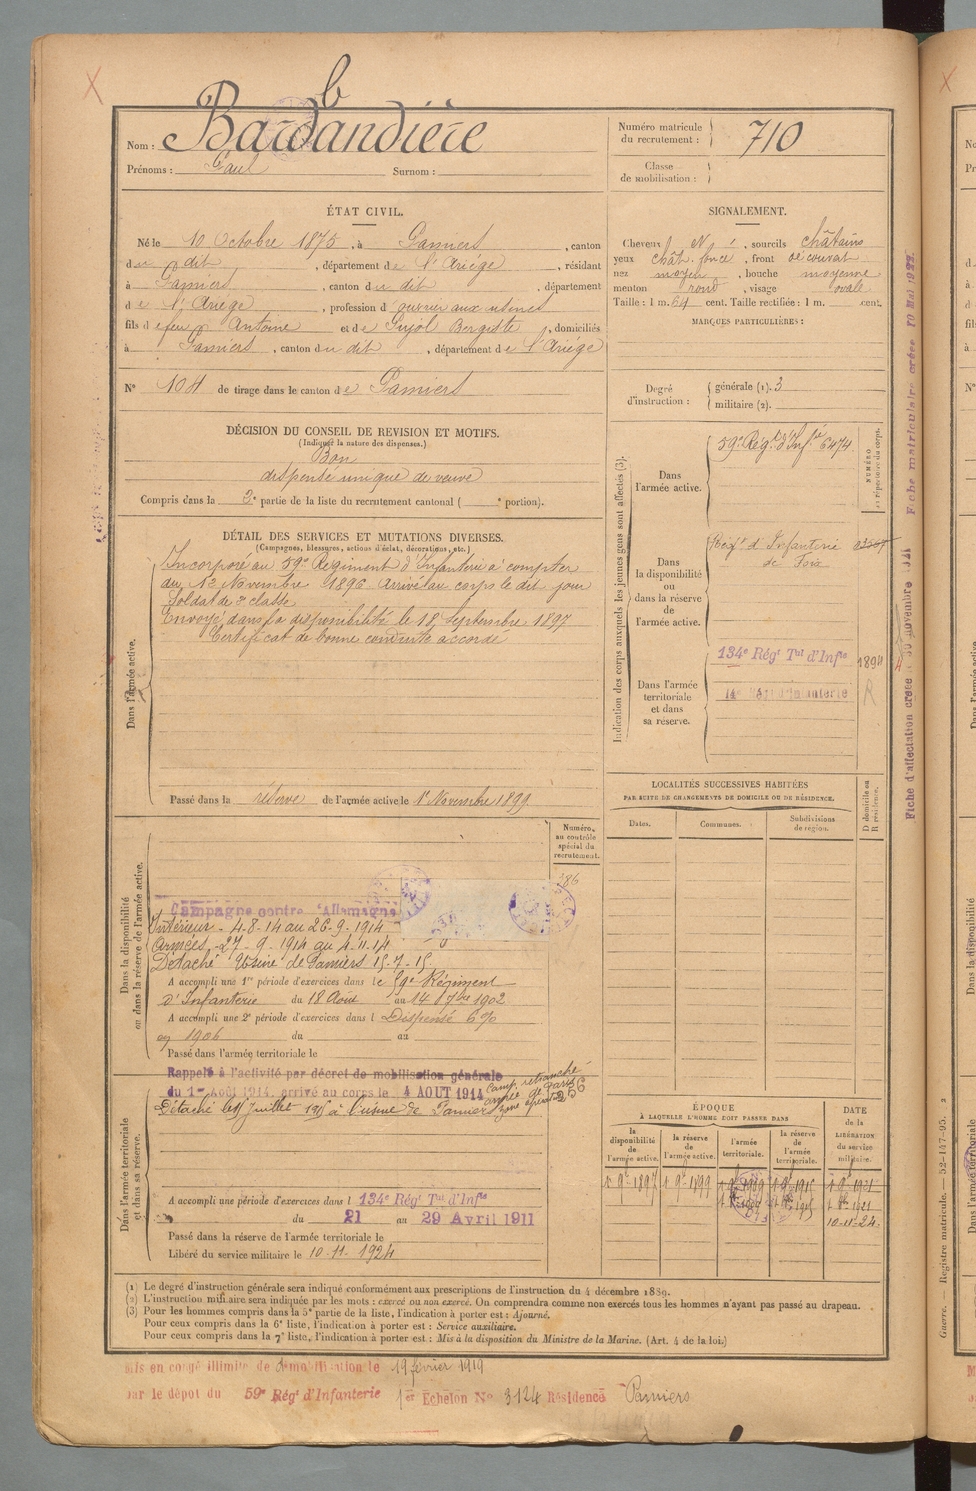 b
Nom : Bardandière
Prénoms : Paul Surnom :
Numéro matricule du recrutement : 710
Classe de mobilisation :
ÉTAT CIVIL.
Né le 10 Octobre 1875, à Pamiers, canton
du dit, département de l'Ariège, résidant
à Pamiers, canton du dit, département
de l'Ariège, profession d'ouvrier aux usines
fils de feu Antoine et de Pujol Bergitte, domiciliés
à Pamiers, canton du dit, département de l'Ariège
N° 104 de tirage dans le canton de Pamiers
SIGNALEMENT.
Cheveux N, sourcils châtains
yeux chât. foncé, front découvert
nez moyen, bouche moyenne
menton rond, visage ovale
Taille : 1 m. 64 cent. Taille rectifiée : 1 m. cent.
MARQUES PARTICULIÈRES :
Degré d'instruction :
générale (1). 3
militaire (2).
DÉCISION DU CONSEIL DE REVISION ET MOTIFS.
(Indiquer la nature des dispenses.)
Bon
dispense unique de veuve
Compris dans la 2e partie de la liste du recrutement cantonal ( e portion).
DÉTAIL DES SERVICES ET MUTATIONS DIVERSES.
(Campagnes, blessures, actions d'éclat, décorations, etc.)
Dans l'armée active.
Incorporé au 59e Régiment d'Infanterie à compter
du Novembre 1896. Arrivé au corps le dit jour
Soldat de 2e classe
Envoyé dans la disponibilité le 18 Septembre 1897
Certificat de bonne conduite accordé
Passé dans la réserve de l'armée active le 1er Novembre 1899
Indication des corps auxquels les jeunes gens sont affectés (3).
NUMÉRO au répertoire du corps.
Dans l'armée active.
59e Régt d'Infie 6474
Dans la disponibilité ou dans la réserve de l'armée active.
Régt d'Infanterie
de Foix
Dans l'armée territoriale et dans sa réserve.
134e Régt Tal d'Infie
1894
R
Fiche matriculaire créée 10 Mai 1922
Fiche d'affectation créée 30 novembre
LOCALITÉS SUCCESSIVES HABITÉES
PAR SUITE DE CHANGEMENTS DE DOMICILE OU DE RÉSIDENCE.
Dates. Communes. Subdivisions de région.
D domicile ou R résidence.
Numéro au contrôle spécial du recrutement.
Dans la disponibilité ou dans la réserve de l'armée active.
Campagne contre l'Allemagne
Intérieur - 4-8-14 au 26-9-1914
Armées - 27-9-1914 au 4-11-14
Détaché Usine de Pamiers 15-7-15
A accompli une 1re période d'exercices dans le 59e Régiment
d'Infanterie du 18 Août au 14 7bre 1902
A accompli une 2e période d'exercices dans l Dispensé 6%
en 1906 du au
Passé dans l'armée territoriale le
Dans l'armée territoriale et dans sa réserve.
Rappelé à l'activité par décret de mobilisation générale
du 1er Août 1914, arrivé au corps le 4 AOUT 1914
Camp retranché de Paris
256
Détaché le 15 Juillet 1915 à l'usine de Pamiers
A accompli une période d'exercices dans l 134e Régt Tal d'Infie
du 21 au 29 Avril 1911
Passé dans la réserve de l'armée territoriale le
Libéré du service militaire le 10.11.1924
ÉPOQUE
À LAQUELLE L'HOMME DOIT PASSER DANS
la disponibilité de l'armée active.
la réserve de l'armée active.
l'armée territoriale.
la réserve de l'armée territoriale.
DATE de la LIBÉRATION du service militaire.
1 9bre 1897 1 9bre 1899 1 9bre 1915 1 9bre 1921
10-11-24
(1) Le degré d'instruction générale sera indiqué conformément aux prescriptions de l'instruction du 4 décembre 1889.
(2) L'instruction militaire sera indiquée par les mots : exercé ou non exercé. On comprendra comme non exercés tous les hommes n'ayant pas passé au drapeau.
(3) Pour les hommes compris dans la 5e partie de la liste, l'indication à porter est : Ajourné.
Pour ceux compris dans la 6e liste, l'indication à porter est : Service auxiliaire.
Pour ceux compris dans la 7e liste, l'indication à porter est : Mis à la disposition du Ministre de la Marine. (Art. 4 de la loi.)
Mis en congé illimité de démobilisation le 19 février 1919
par le dépôt du 59e Régt d'Infanterie 1er Echelon N° 3124 Résidence Pamiers
Guerre. — Registre matricule. — 52-147-95.